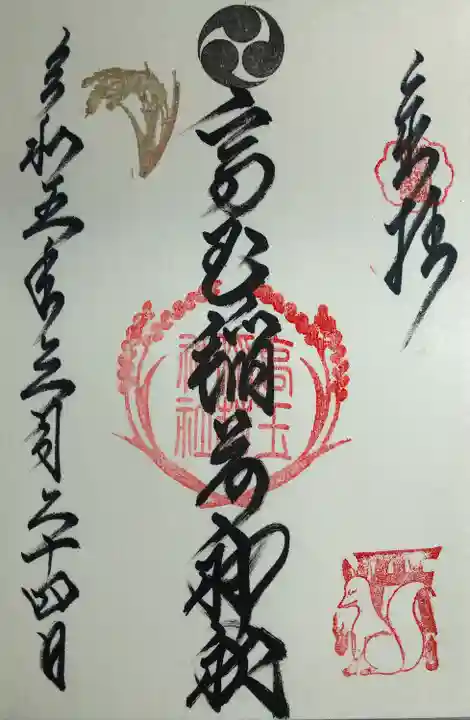 奉拝
高玉稲荷神社
高玉
稲荷
神社
令和五年三月二十四日